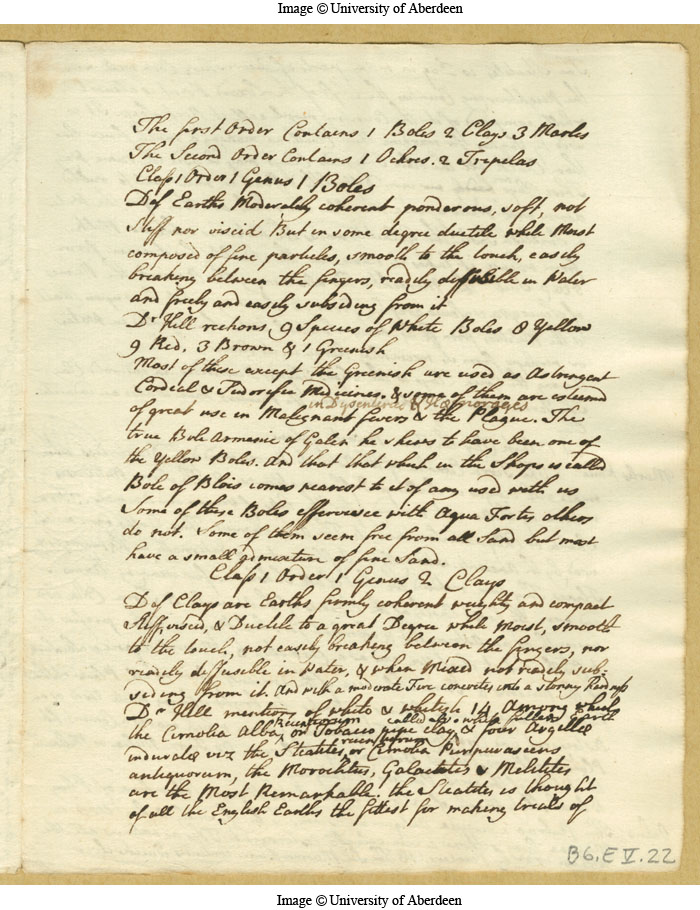 Image © University of Aberdeen
The first Order Contains 1 Boles 2 Clays 3 Marles
The Second Order Contains 1 Ochres. 2 Tripelas
Class 1 Order 1 Genus 1 Boles
Def Earths Moderately coherent ponderous, soft, not
stiff nor viscid But in some degree ductile while Moist
composed of fine particles, smooth to the touch, easely
breaking between the fingers, readely diffusible in Water
and freely and easely subsiding from it
Dr Hill reckons 9 Species of White Boles 8 Yellow
9 Red, 3 Brown & 1 Greenish
Most of these except the Greenish are used as Astringent
Cordeal & Sudorifick Medicines. & some of them are esteemed
in Dysenteries & Hæmorrages
of great use in Malignant fevers & the Plague. The
true Bole Armenic of Galen he shews to have been one of
the Yellow Boles. And that that which in the Shops is called
Bole of Blois comes nearest to it of any used with us
Some of these Boles effervesce with Aqua Fortis others
do not. Some of them seem free from all Sand but most
have a small admixture of fine Sand.
Class 1 Order 1 Genus 2 Clays
Def Clays are Earths firmly coherent weighty and compact
Stiff, viscid, & Ductile to a great Degree while Moist, smooth
to the touch, not easely breaking between the fingers, nor
readely diffusible in Water, & when Mixed not readely sub-
siding from it. And with a moderate Fire concretes into a stonny Hardness
Dr Hill mentions of white & whitish 14 Among which
the Cimolia Alba, or Tobacco pipe clay, & four Argillæ
Recentiorum called also white fullers Earth
induratæ viz the Steatites, or Cimolia Purpurascens
antiquorum, the Morochtus, Galactites & Melitites
are the Most Remarkable. the Steatites is thought
of all the English Earths the fittest for making trials of
B6.E V.22
Image © University of Aberdeen